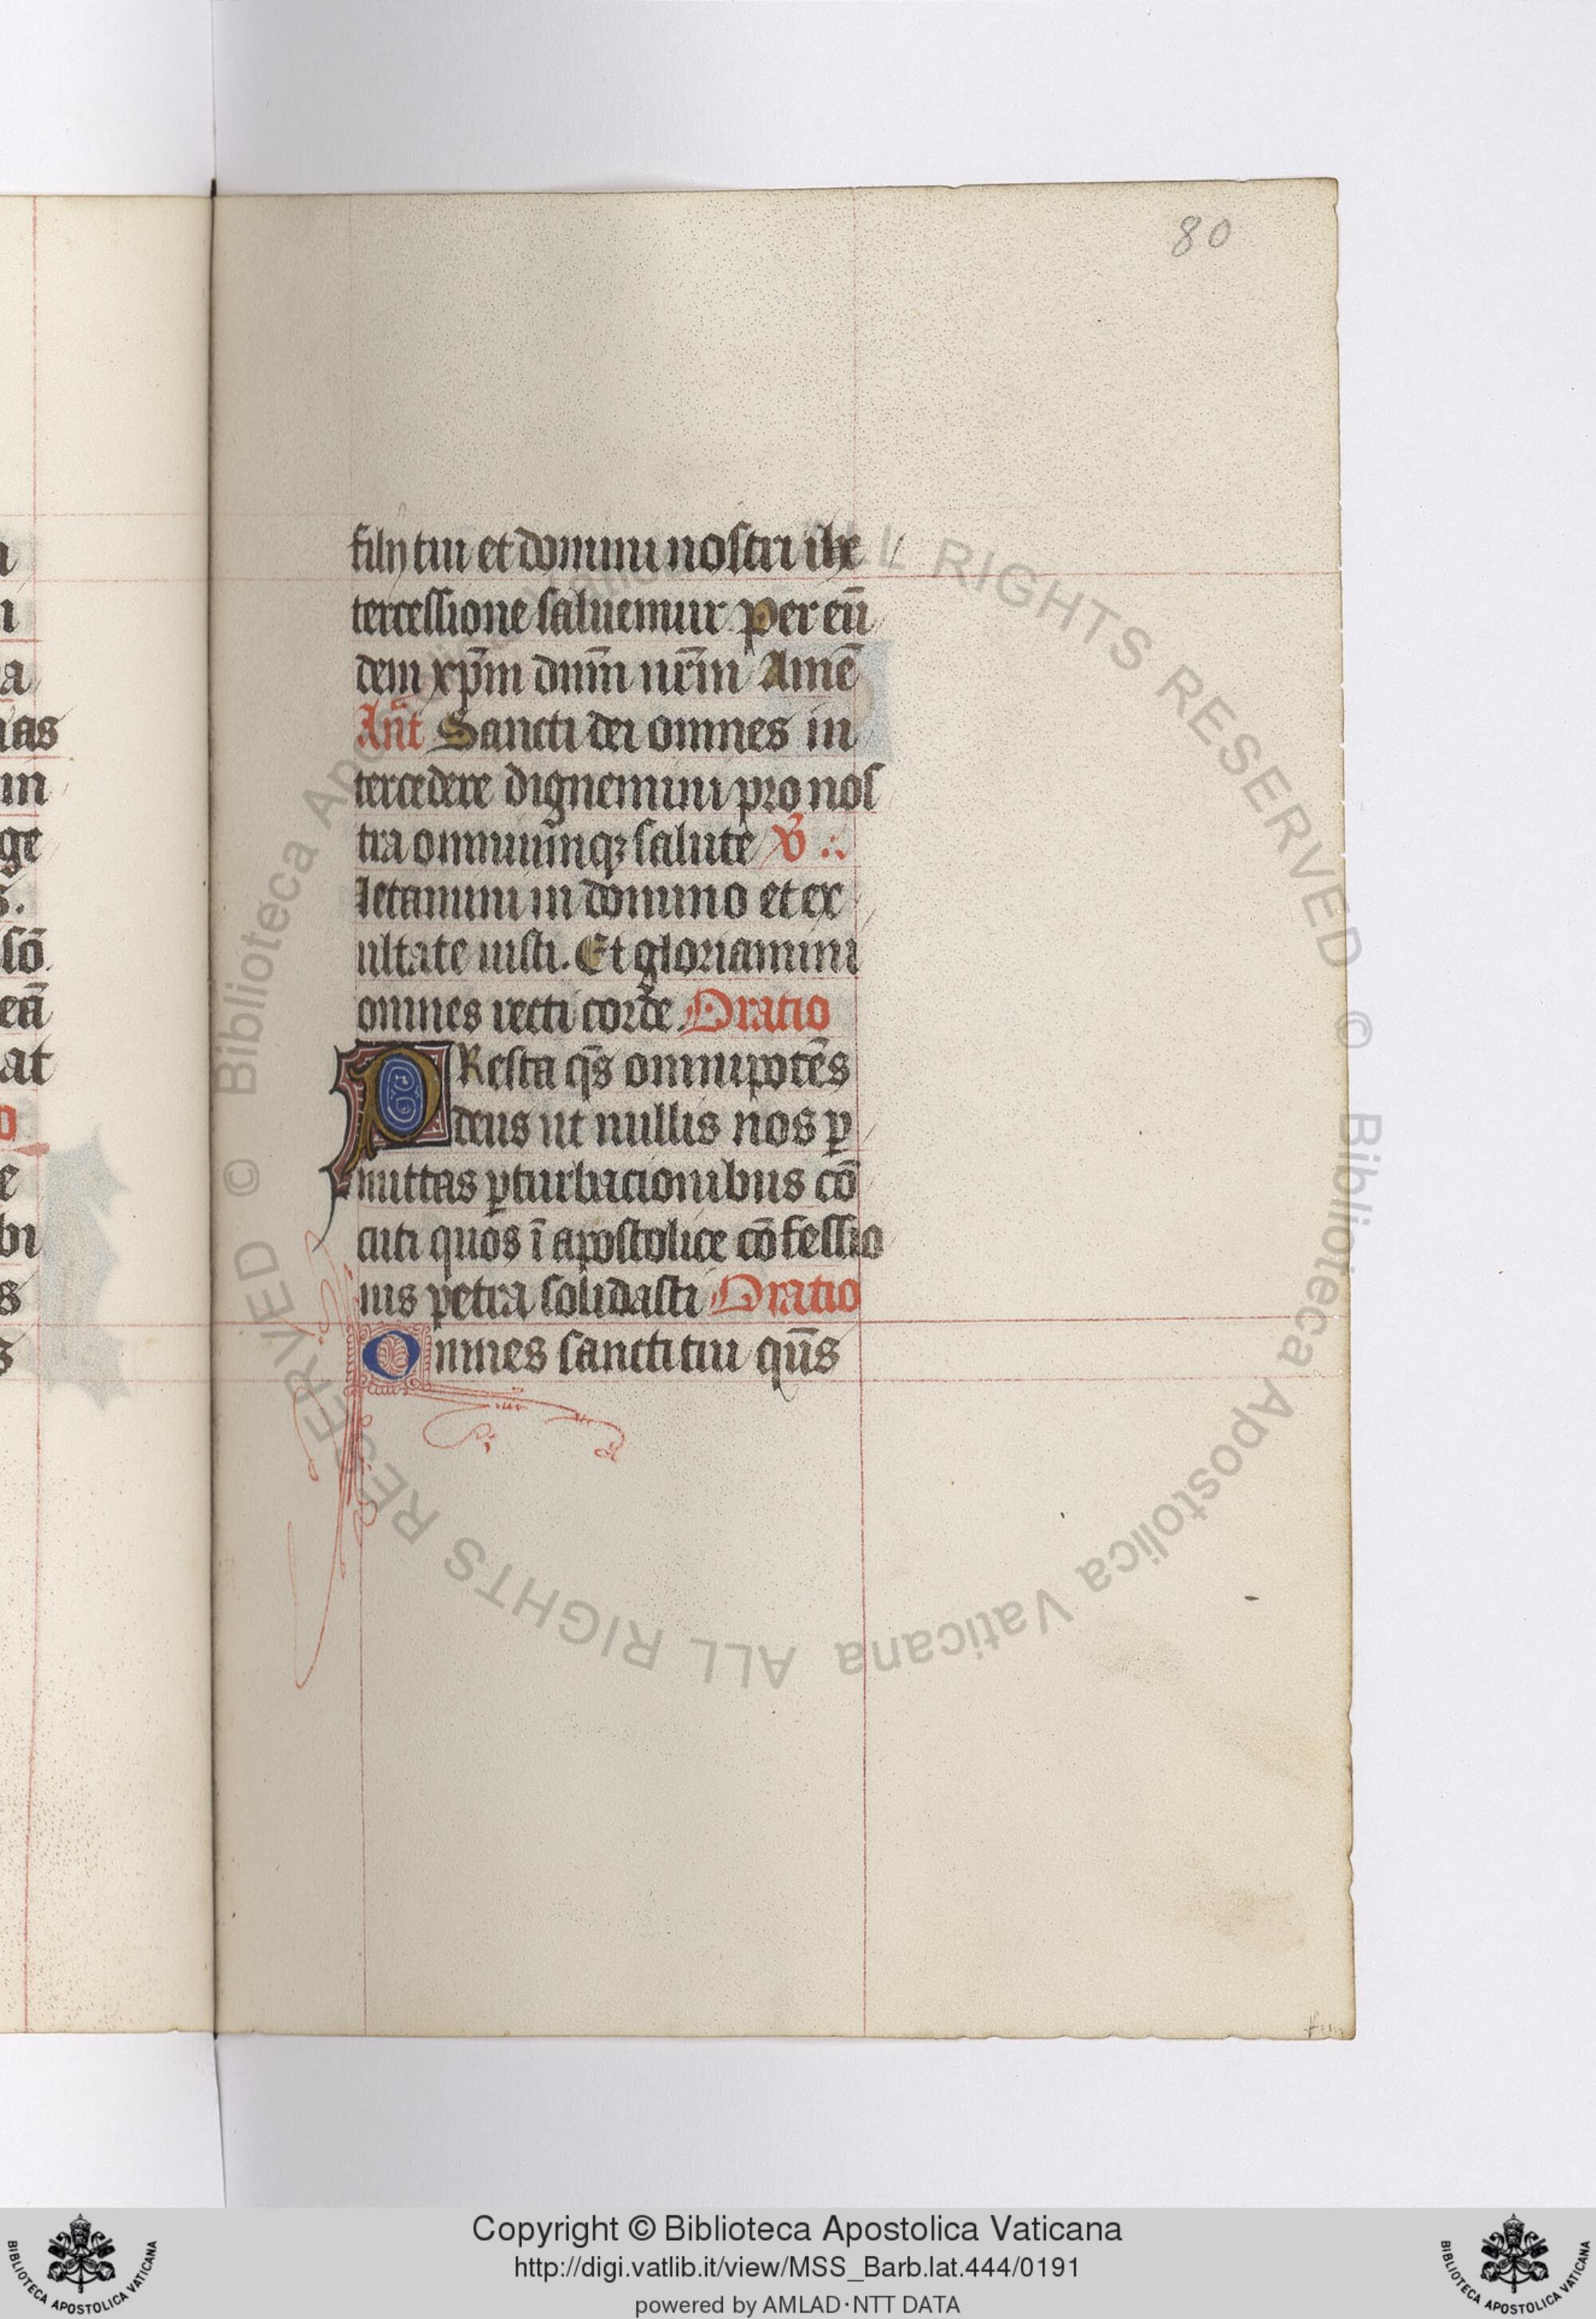 80
filij tui et domini nostri ihc
tercessione saluemur Per eū
dem xp̄m dnm̄ nrm̄ Amē
An̄t Sancti dei omnes in
tercedere dignemini pro nos
tra omniumq; salute V̄
letamini in domino et ex
ultate iusti. Et gloriamini
omnes recti corde Oratio
PResta qs̄ omnipotēs
deus ut nullis nos ꝑ
mittas ꝑturbacionibus cō
cuti quos ī apostolice cōfessio
nis petra solidasti Oratio
Omnes sancti tui qūs
a
n
a
ias
un
ge
s.
sō
eā
at
o
e
bi
s
s
© Biblioteca Apostolica Vaticana ALL RIGHTS RESERVED © Biblioteca Apostolica Vaticana ALL RIGHTS RESERVED
Copyright © Biblioteca Apostolica Vaticana
http://digi.vatlib.it/view/MSS_Barb.lat.444/0191
powered by AMLAD·NTT DATA
BIBLIOTECA APOSTOLICA VATICANA
BIBLIOTECA APOSTOLICA VATICANA